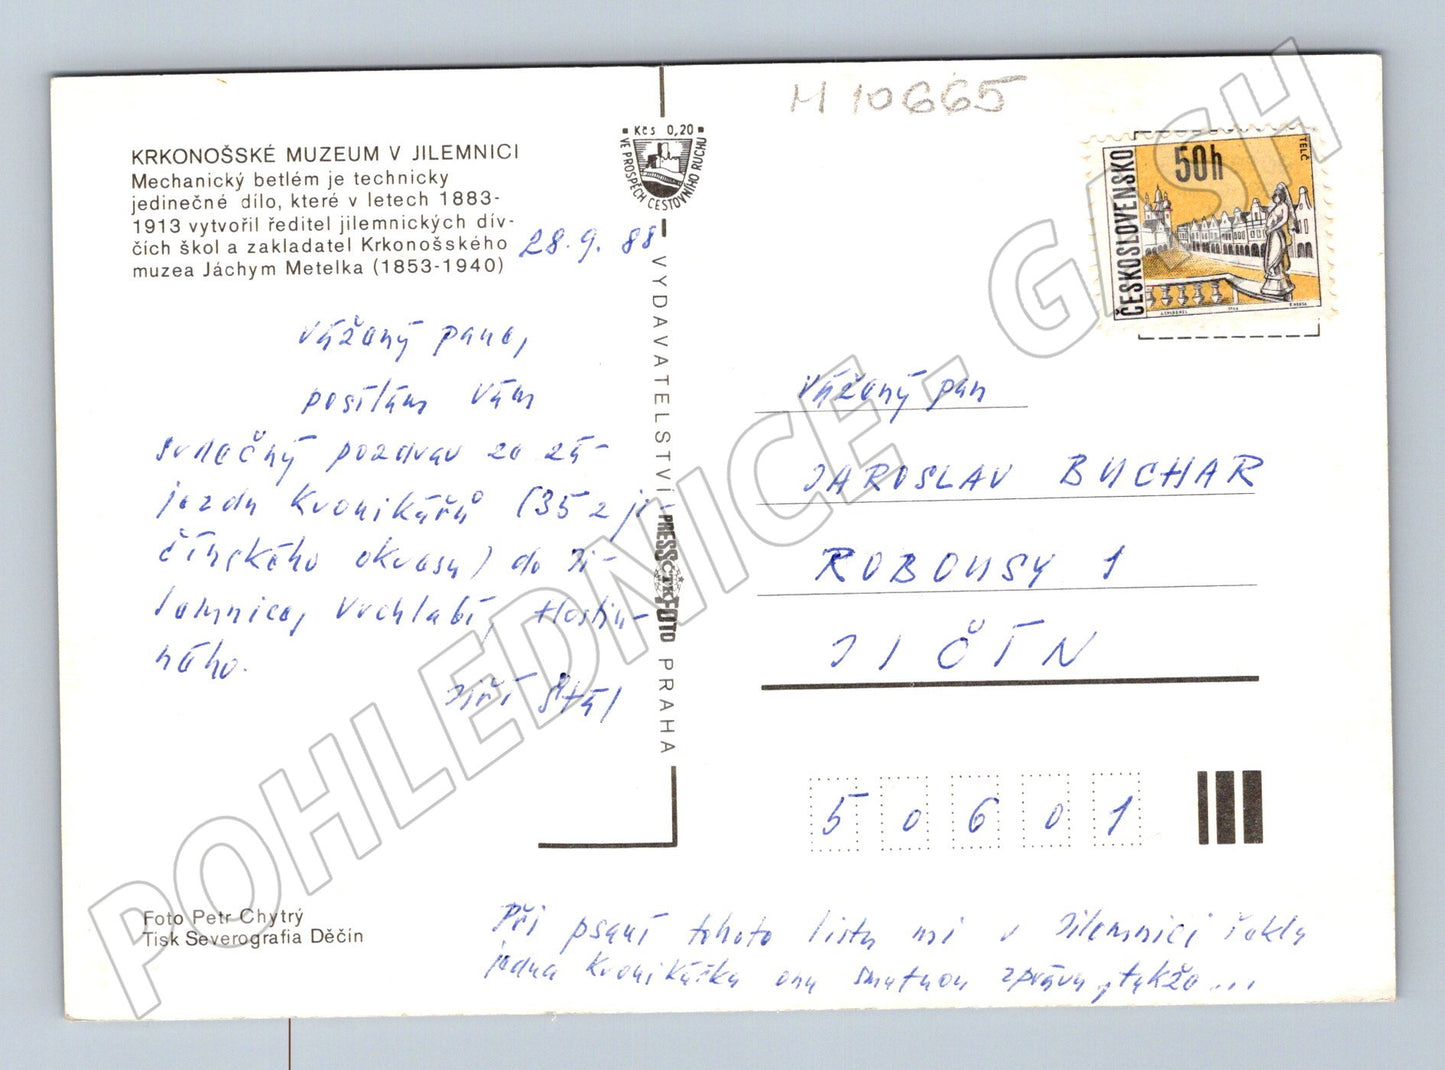 M 10665
Kčs 0,20
VE PROSPĚCH CESTOVNÍHO RUCHU
KRKONOŠSKÉ MUZEUM V JILEMNICI
Mechanický betlém je technicky
jedinečné dílo, které v letech 1883-
1913 vytvořil ředitel jilemnických dív-
čích škol a zakladatel Krkonošského
muzea Jáchym Metelka (1853-1940)
28.9.88
Vážený pane,
posílám Vám
srdečný pozdrav ze zá-
jezdu kronikářů (35 z ji-
čínského okresu) do Ji-
lemnice, Vrchlabí, Hostin-
ného.
Jiří Štál
Foto Petr Chytrý
Tisk Severografia Děčín
VYDAVATELSTVÍ PRESSFOTO PRAHA
ČTK
ČESKOSLOVENSKO
50h
TELČ
Vážený pan
JAROSLAV BUCHAR
ROBOUSY 1
JIČÍN
50601
Při psaní tohoto listu mi v Jilemnici řekla
jedna kronikářka onu smutnou zprávu, takže...
POHLEDNICE - GASH